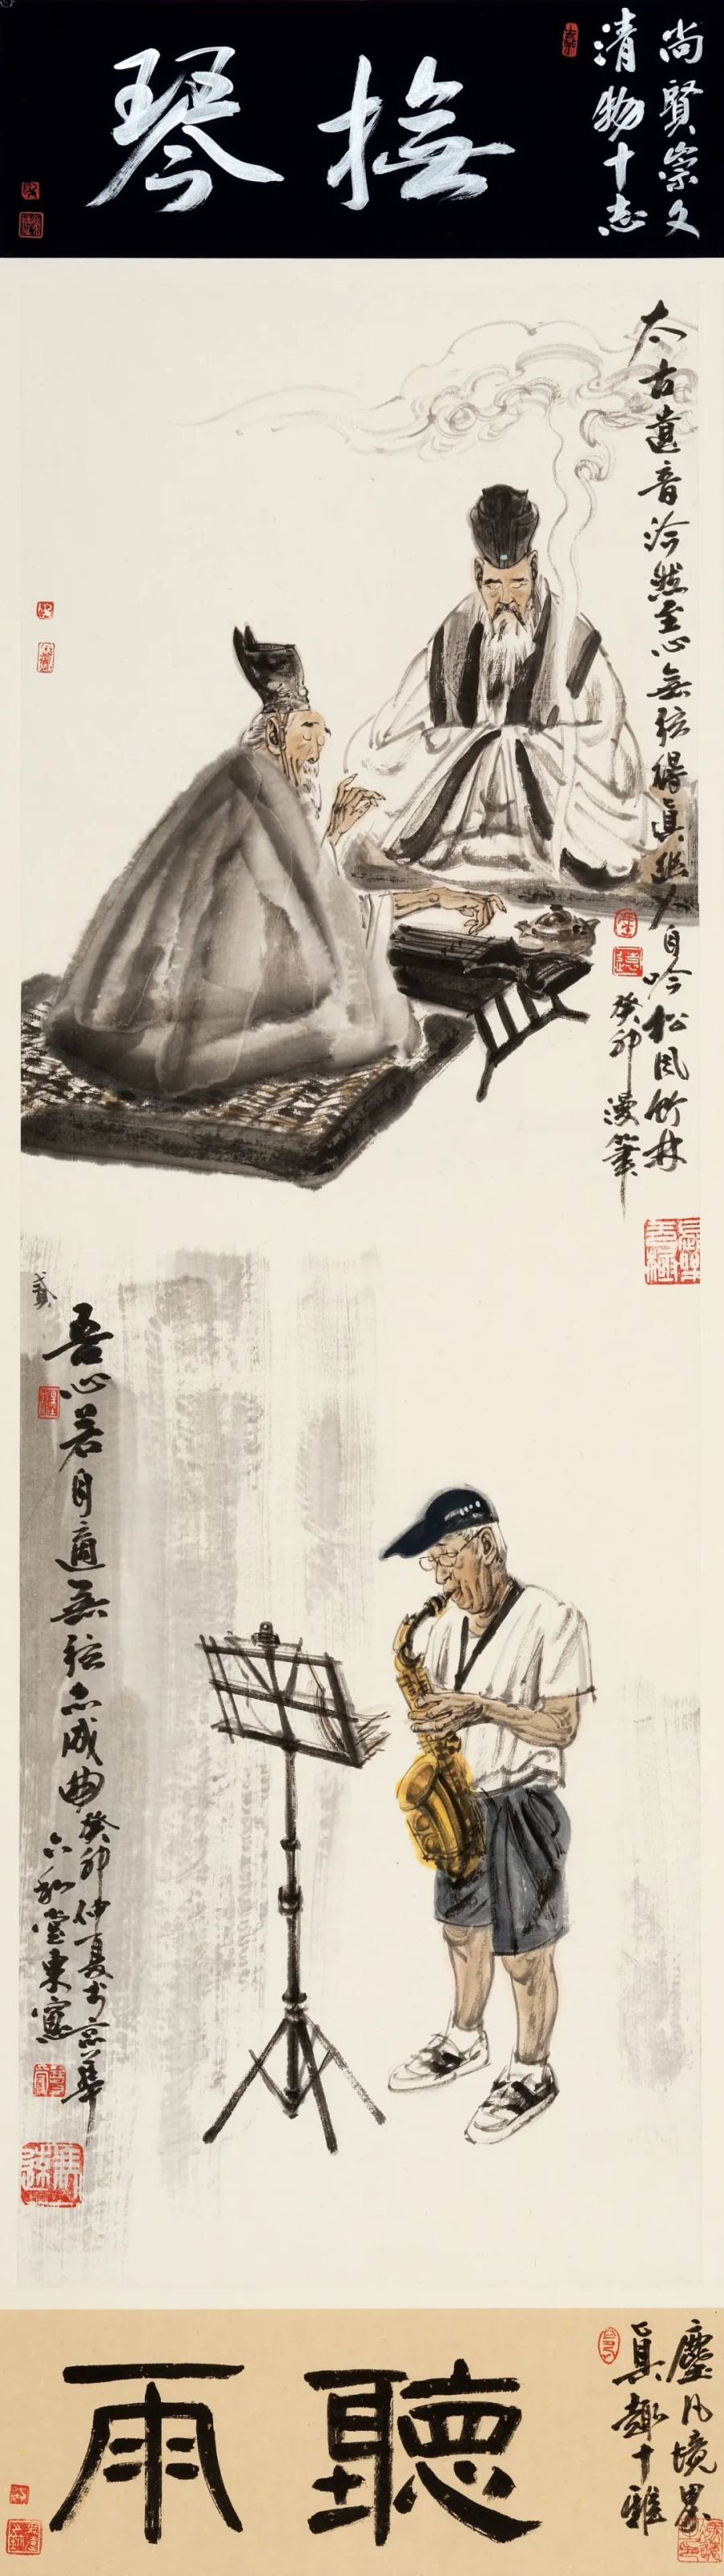 尚賢崇文
清物十志
撫琴
太古遺音泠然至心無弦得真趣人自吟松風竹林
癸卯漫筆
貳
吾心若月適無弦亦成曲癸卯仲夏於京華
六和堂東窗
塵凡境界
真趣十雅
聽雨